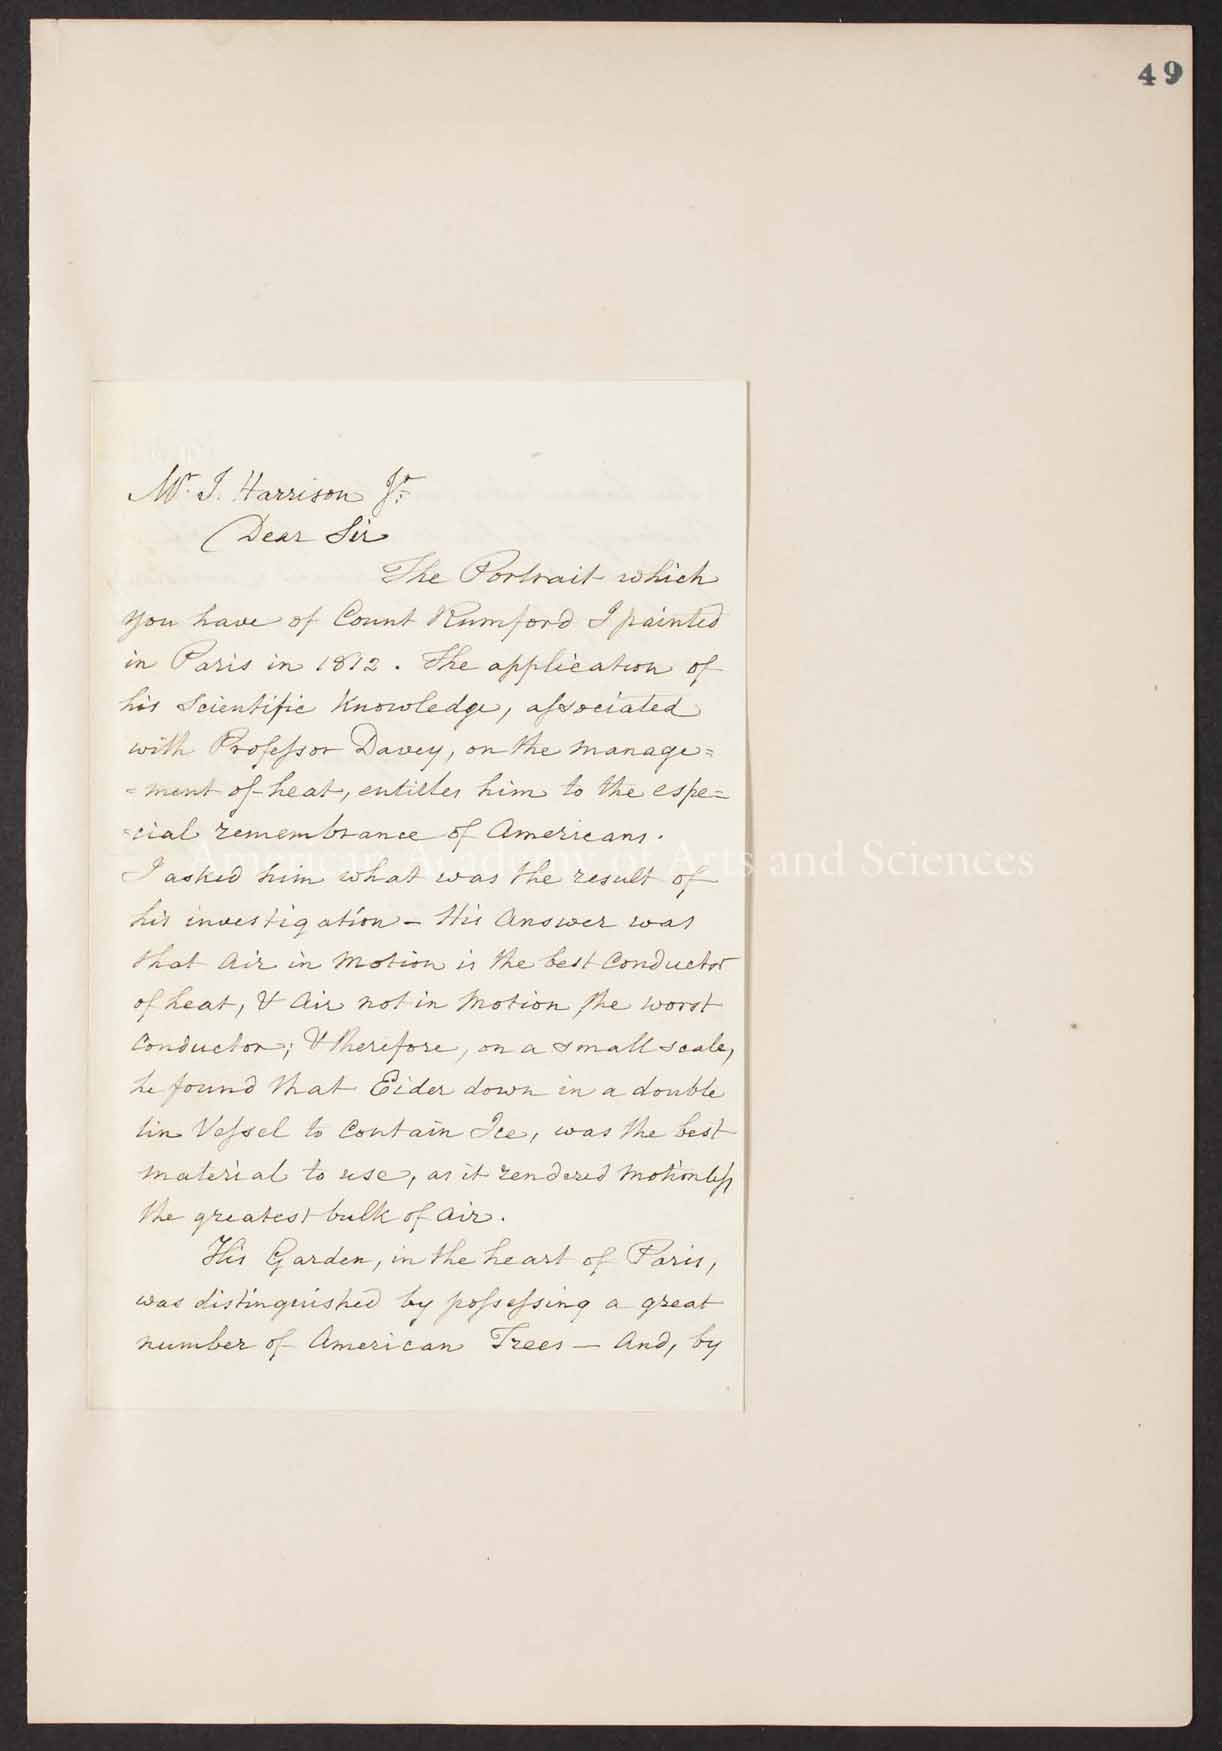 49
Mr. J. Harrison Jr.
Dear Sir
The Portrait which
you have of Count Rumford I painted
in Paris in 1812. The application of
his Scientific Knowledge, associated
with Professor Davey, on the manage=
=ment of heat, entitles him to the espe=
=cial remembrance of Americans.
American Academy of Arts and Sciences
I asked him what was the result of
his investigation – His Answer was
that Air in Motion is the best Conductor
of heat, & Air not in Motion the worst
Conductor; & therefore, on a small scale,
he found that Eider down in a double
tin Vessel to contain Ice, was the best
material to use, as it rendered motionless
the greatest bulk of air.
His Garden, in the heart of Paris,
was distinguished by possessing a great
number of American Trees — And, by